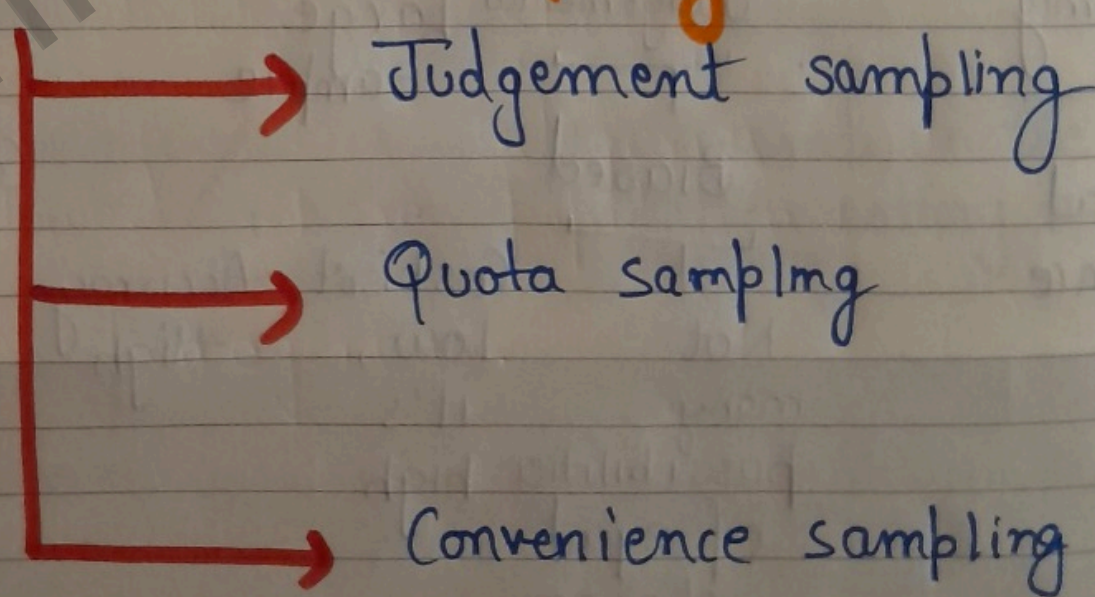 Judgement sampling
Quota sampling
Convenience sampling